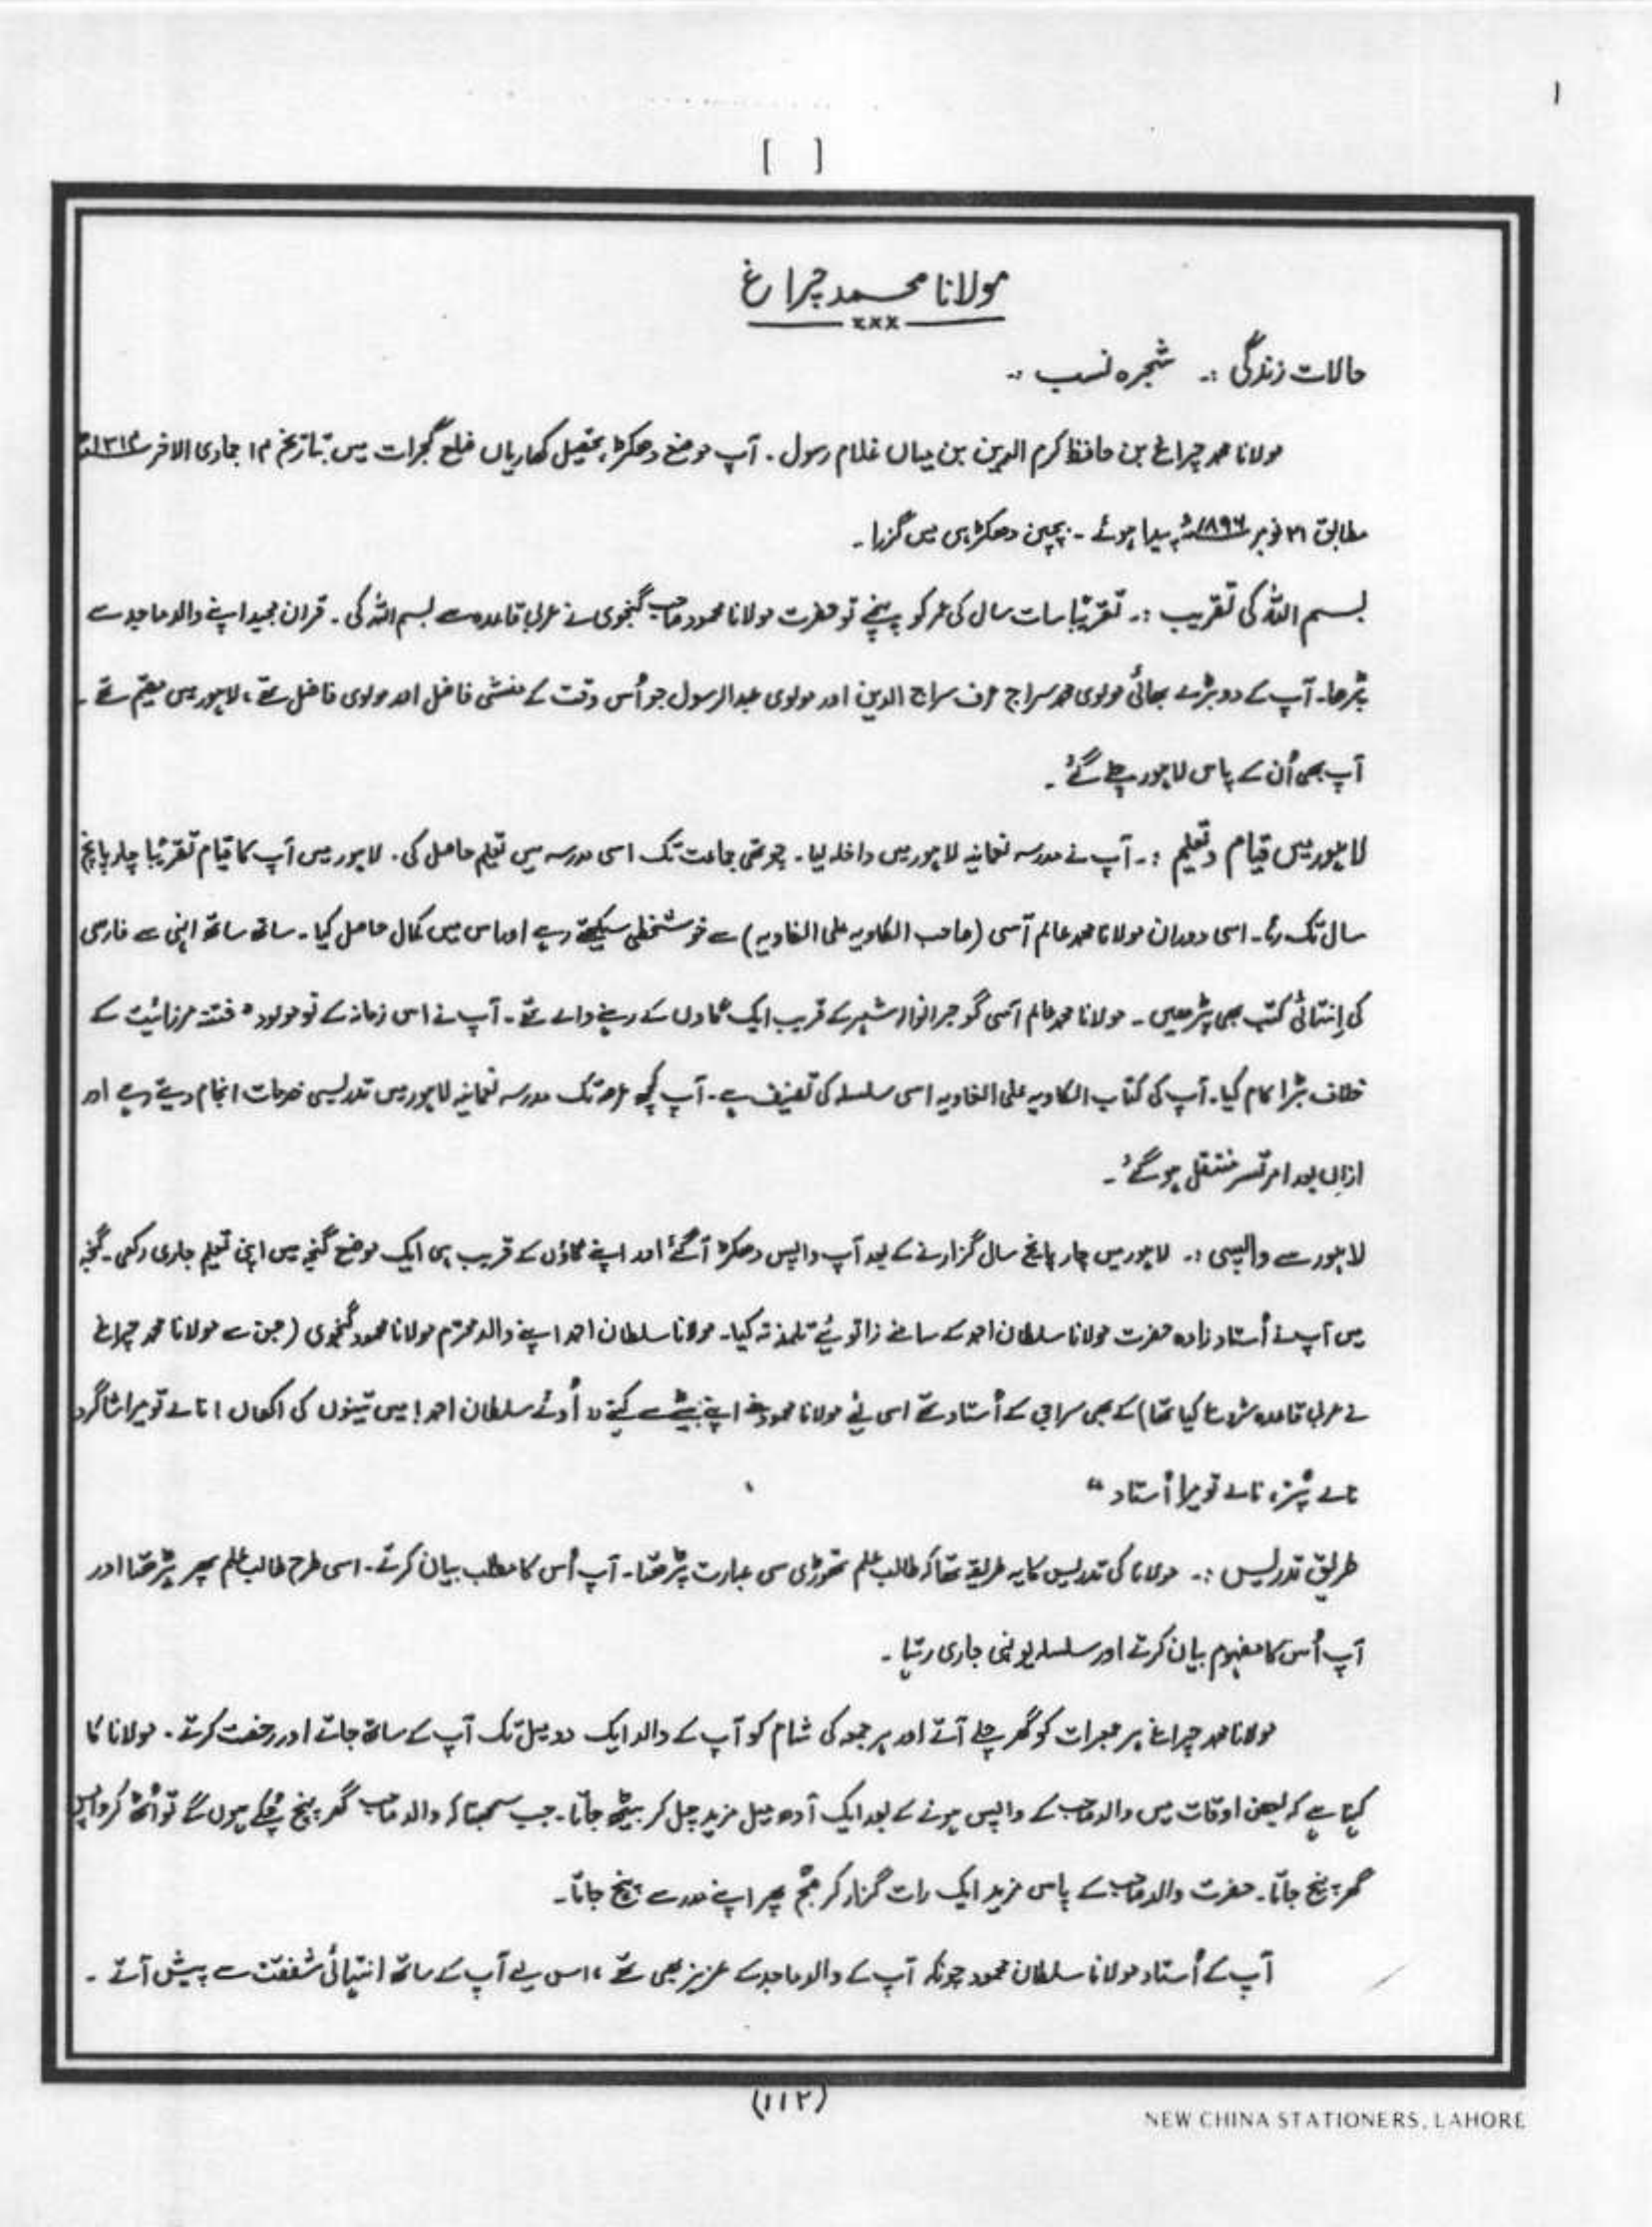 ۱
[ ]
مولانا محمد چراغ
×××
حالات زندگی :۔ شجرہ نسب :۔
مولانا محمد چراغ بن حافظ کرم الدین بن میاں غلام رسول ۔ آپ موضع دھکڑ، تحصیل کھاریاں ضلع گجرات میں بتاریخ ۱۴ جمادی الاخر ۱۳۱۴ھ
مطابق ۲۱ نومبر ۱۸۹۶ء پیدا ہوئے ۔ بچپن دھکڑ ہی میں گزرا ۔
بسم اللہ کی تقریب :۔ تقریبًا سات سال کی عمر کو پہنچے تو حضرت مولانا محمود صاحب گنجوی نے عربی قاعدہ سے بسم اللہ کی ۔ قرآن مجید اپنے والد ماجد سے
پڑھا ۔ آپ کے دو بڑے بھائی مولوی محمد سراج عرف سراج الدین اور مولوی عبدالرسول جو اُس وقت کے منشی فاضل اور مولوی فاضل تھے ، لاہور میں مقیم تھے ۔
آپ بھی اُن کے پاس لاہور چلے گئے ۔
لاہور میں قیام و تعلیم :۔ آپ نے مدرسہ نعمانیہ لاہور میں داخلہ لیا ۔ چوتھی جماعت تک اسی مدرسہ میں تعلیم حاصل کی ۔ لاہور میں آپ کا قیام تقریبًا چار پانچ
سال تک رہا ۔ اسی دوران مولانا محمد عالم آسی (صاحب الکاویہ علی الغاویہ) سے خوشخطی سیکھتے رہے اور اس میں کمال حاصل کیا ۔ ساتھ ساتھ انہی سے فارسی
کی اِنتہائی کتب بھی پڑھیں ۔ مولانا محمد عالم آسی گوجرانوالہ شہر کے قریب ایک گاوں کے رہنے والے تھے ۔ آپ نے اس زمانہ کے نومولود " فتنہ مرزائیت کے
خلاف بڑا کام کیا ۔ آپ کی کتاب الکاویہ علی الغاویہ اسی سلسلہ کی تصنیف ہے ۔ آپ کچھ عرصہ تک مدرسہ نعمانیہ لاہور میں تدریسی خدمات انجام دیتے رہے اور
ازاں بعد امرتسر منتقل ہو گئے ۔
لاہور سے واپسی :۔ لاہور میں چار پانچ سال گزارنے کے بعد آپ واپس دھکڑ آ گئے اور اپنے گاؤں کے قریب ہی ایک موضع گنجہ میں اپنی تعلیم جاری رکھی ۔ گنجہ
میں آپ نے اُستاد زادہ حضرت مولانا سلطان احمد کے سامنے زانوئے تلمذ تہ کیا ۔ مولانا سلطان احمد اپنے والد محترم مولانا محمود گنجوی (جن سے مولانا محمد چراغ
نے عربی قاعدہ شروع کیا تھا) کے بھی سراجی کے اُستاد تھے اسی لئے مولانا محمود اپنے بیٹے سے کہتے " اُوئے سلطان احمد ! میں تینوں کی اکھاں ! نالے تو میرا شاگرد
نالے پُتر، نالے تو میرا اُستاد "
طریق تدریس :۔ مولانا کی تدریس کا یہ طریقہ تھا کہ طالب علم تھوڑی سی عبارت پڑھتا ۔ آپ اُس کا مطلب بیان کرتے ۔ اسی طرح طالب علم پھر پڑھتا اور
آپ اُس کا مفہوم بیان کرتے اور سلسلہ یونہی جاری رہتا ۔
مولانا محمد چراغ ہر جمعرات کو گھر چلے آتے اور ہر جمعہ کی شام کو آپ کے والد ایک دو میل تک آپ کے ساتھ جاتے اور رخصت کرتے ۔ مولانا کا
کہنا ہے کہ بعض اوقات میں والد صاحب کے واپس ہونے کے بعد ایک آدھ میل مزید چل کر بیٹھ جاتا ۔ جب سمجھتا کہ والد صاحب گھر پہنچ چُکے ہوں گے تو اُٹھ کر واپس
گھر پہنچ جاتا ۔ حضرت والد صاحب کے پاس مزید ایک رات گزار کر صبح پھر اپنے مدرسے پہنچ جاتا ۔
آپ کے اُستاد مولانا سلطان محمود چونکہ آپ کے والد ماجد کے عزیز بھی تھے ، اس لیے آپ کے ساتھ انتہائی شفقت سے پیش آتے ۔
(۱۱۲)
NEW CHINA STATIONERS, LAHORE